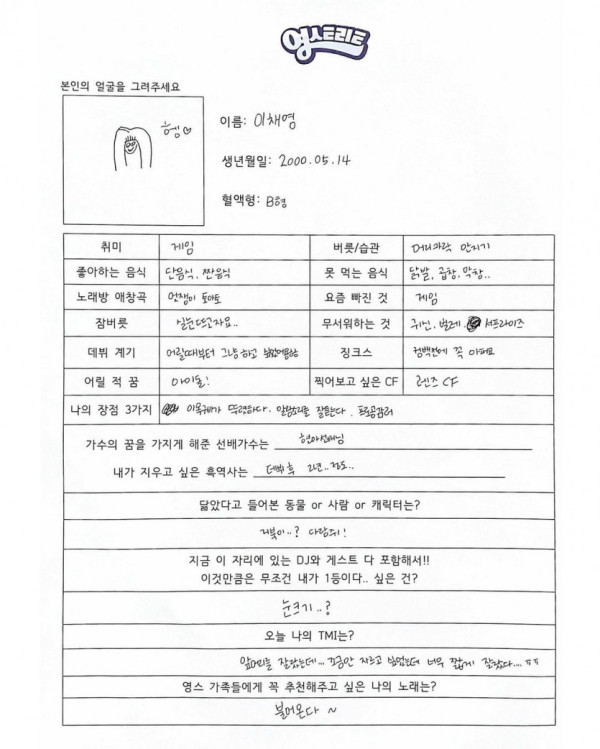 영스트리트
본인의 얼굴을 그려주세요
헹♡
이름: 이채영
생년월일: 2000.05.14
혈액형: B형
취미 게임 버릇/습관 머리카락 만지기
좋아하는 음식 단음식, 짠음식 못 먹는 음식 닭발, 곱창, 막창..
노래방 애창곡 멋쟁이 토마토 요즘 빠진 것 게임
잠버릇 실눈뜨고자요.. 무서워하는 것 귀신, 벌레, 서프라이즈
데뷔 계기 어릴때부터 그냥 하고 싶었어용 징크스 컴백전에 꼭 아파요
어릴 적 꿈 아이돌! 찍어보고 싶은 CF 렌즈 CF
나의 장점 3가지 이목구비가 뚜렷하다. 말랑 잘 한다.
가수의 꿈을 가지게 해준 선배가수는 현아선배님
내가 지우고 싶은 흑역사는 데뷔 후 2년..정도..
닮았다고 들어본 동물 or 사람 or 캐릭터는?
거북이..? 다람쥐!
지금 이 자리에 있는 DJ와 게스트 다 포함해서!!
이것만큼은 무조건 내가 1등이다.. 싶은 건?
눈크기..?
오늘 나의 TMI는?
앞머리를 잘랐는데... 조금만 자르고 싶었는데 너무 짧게 잘랐다.... ㅠㅠ
영스 가족들에게 꼭 추천해주고 싶은 나의 노래는?
불어온다 ~